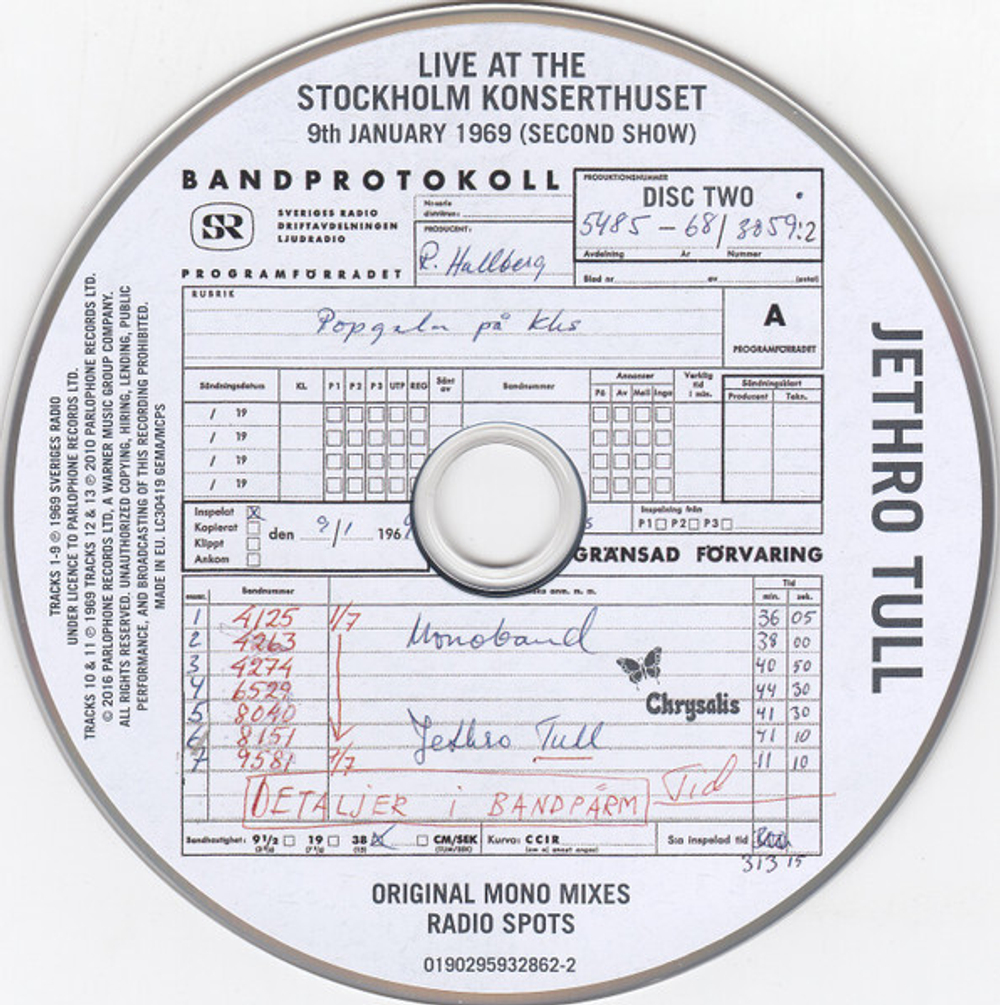 LIVE AT THE
STOCKHOLM KONSERTHUSET
9th JANUARY 1969 (SECOND SHOW)
BANDPROTOKOLL
SR
SVERIGES RADIO
DRIFTAVDELNINGEN
LJUDRADIO
PROGRAMFÖRRÅDET
PRODUCENT:
R. Hallberg
PRODUKTIONSNUMMER
DISC TWO
5485 - 68/3059:2
Avdelning År Nummer
Blad nr av (antal)
RUBRIK
Popgala på Khs
A
PROGRAMFÖRRÅDET
Sändningsdatum KL. P1 P2 P3 UTP REG Sänt av Bandnummer Annonser På Av Mell Inga Verklig tid i min. Sändningsklart Producent Tekn.
/ 19
/ 19
/ 19
/ 19
Inspelat X
Kopierat
Klippt
Ankom
den 9/1 196
Inspelning från
P1 P2 P3
GRÄNSAD FÖRVARING
Bandnummer anm. m. m. Tid
min. sek.
1 4125 1/7 Monoband 36 05
2 4263 38 00
3 4274 40 50
4 6529 44 30
5 8040 41 30
6 8151 Jethro Tull 41 10
7 9581 7/7 11 10
Chrysalis
DETALJER i BANDPÄRM Tid
Bandhastighet: 9 1/2 19 38 X CM/SEK Kurva: CCIR Sa inspelad tid
313 15
ORIGINAL MONO MIXES
RADIO SPOTS
0190295932862-2
JETHRO TULL
TRACKS 1-9 ℗ 1969 SVERIGES RADIO
UNDER LICENCE TO PARLOPHONE RECORDS LTD.
TRACKS 10 & 11 ℗ 1969 TRACKS 12 & 13 ℗ 2010 PARLOPHONE RECORDS LTD.
© 2016 PARLOPHONE RECORDS LTD, A WARNER MUSIC GROUP COMPANY.
ALL RIGHTS RESERVED. UNAUTHORIZED COPYING, HIRING, LENDING, PUBLIC
PERFORMANCE, AND BROADCASTING OF THIS RECORDING PROHIBITED.
MADE IN EU. LC30419 GEMA/MCPS